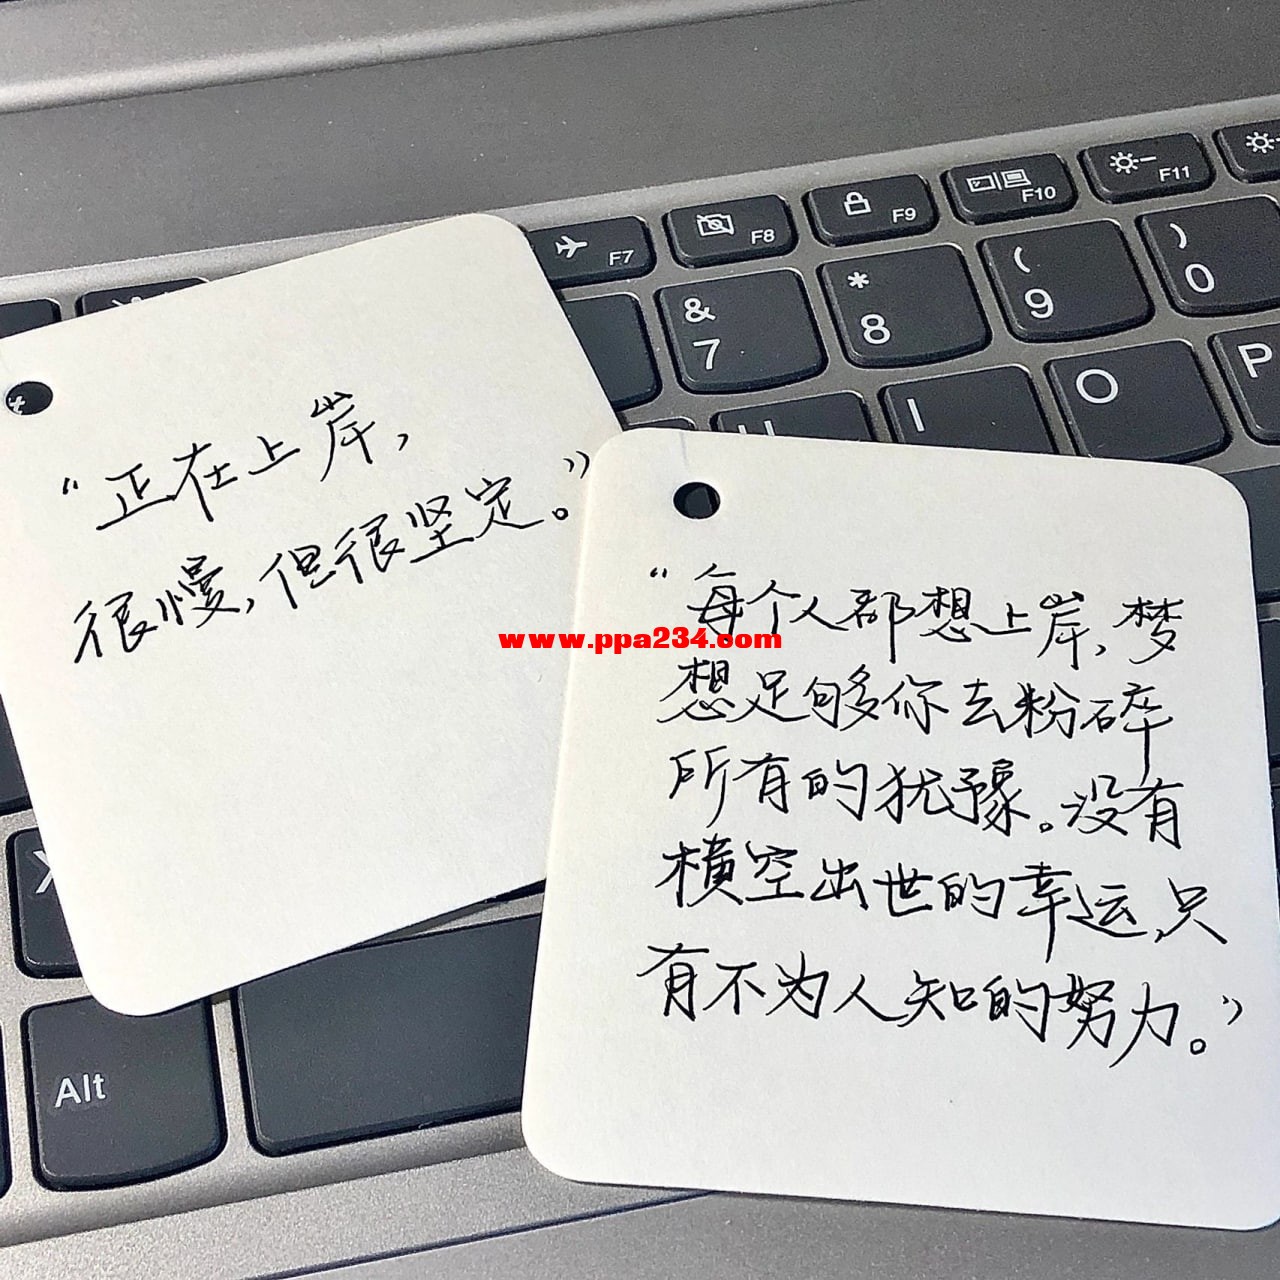 F7
F8
F9
F10
F11
&
7
*
8
(
9
)
0
U
I
O
P
“正在上岸,
很慢,但很坚定。”
www.ppa234.com
“每个人都想上岸,梦
想足够你去粉碎
所有的犹豫。没有
横空出世的幸运,只
有不为人知的努力。”
X
Alt